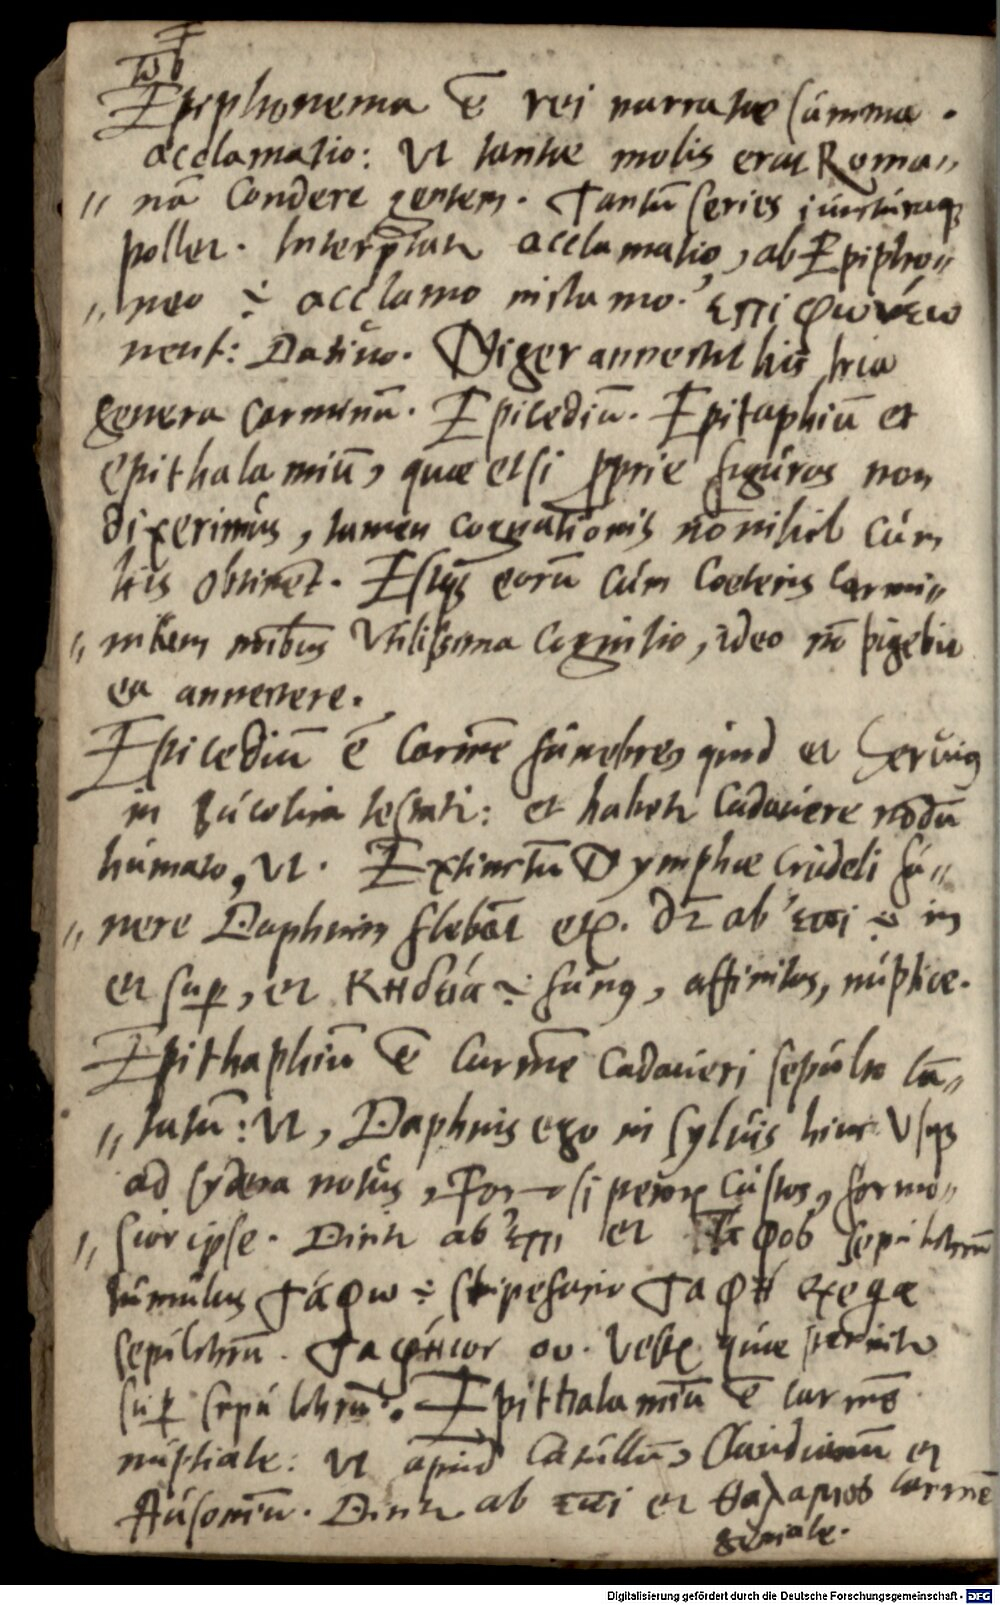 Epiphonema ē rei narratae summa
acclamatio: Vt tantae molis erat Roma〃
〃 nā condere gentem. Tantū series iuncturaq;
pollet. Interp̄tatr acclamatio, ab Epipho〃
〃 neo ÷ acclamo ἐπιφωνέω
neut: Dativo. Niger annectit his tria
genera carminū. Epicediū. Epitaphiū et
epithalamiū, quae etsi pprie figuras non
dixerimus, tamen cognationis nōnihil cum
his obtinēt. Estq; eorū cum coeteris carmi〃
〃 utilissima cognitio, ideo nō pigebit
ea annectere.
Epicediū ē carmē funebre, quod et Servius
in Bucolica testatr: et habetr cadavere nōdū
humato, Vt. Extinctū Nymphae crudeli fu〃
〃 nere Daphnin flebāt etc. dr ab ἐπι ÷ in
et sup, et κηδεία ÷ funus, affinitas, nuptiae.
Epithaphiū ē carmē cadaveri sepulto can〃
〃 tatū: Vt, Daphnis ego in sylvis hinc Vsq;
ad sydera notus, Formosi pecoris custos, formo〃
〃 sior ipse. Dicitr ab ἐπι et ταφος sepulchrū
tumulus ταφω ÷ stupefacio ταφη exeqae
sepulchrū. ου. Vestis quae sternitr
sup sepulchrū. Epithalamiū ē carmē
nuptiale: Vt apud Catullū, Claudianū et
Ausoniū. Dicitr ab ἐπι et θαλαμος carmē
geniale.
Digitalisierung gefördert durch die Deutsche Forschungsgemeinschaft - DFG